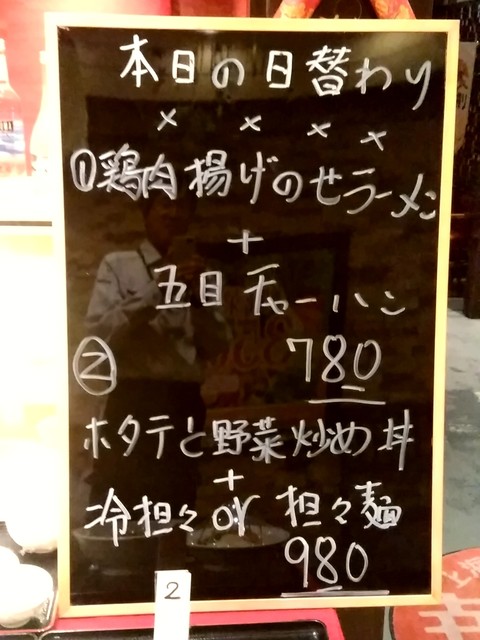 本日の日替わり
× × × ×
①鶏肉揚げのせラーメン
+
五目チャーハン
780
②
ホタテと野菜炒め丼
+
冷担々 or 担々麺
980
2